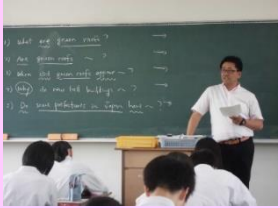 1) What are green roofs?
2) Are green roofs ~ ?
3) When did green roofs appear ~ ?
4) Why do new tall buildings ~ ?
5) Do some prefectures in Japan have ~ ?